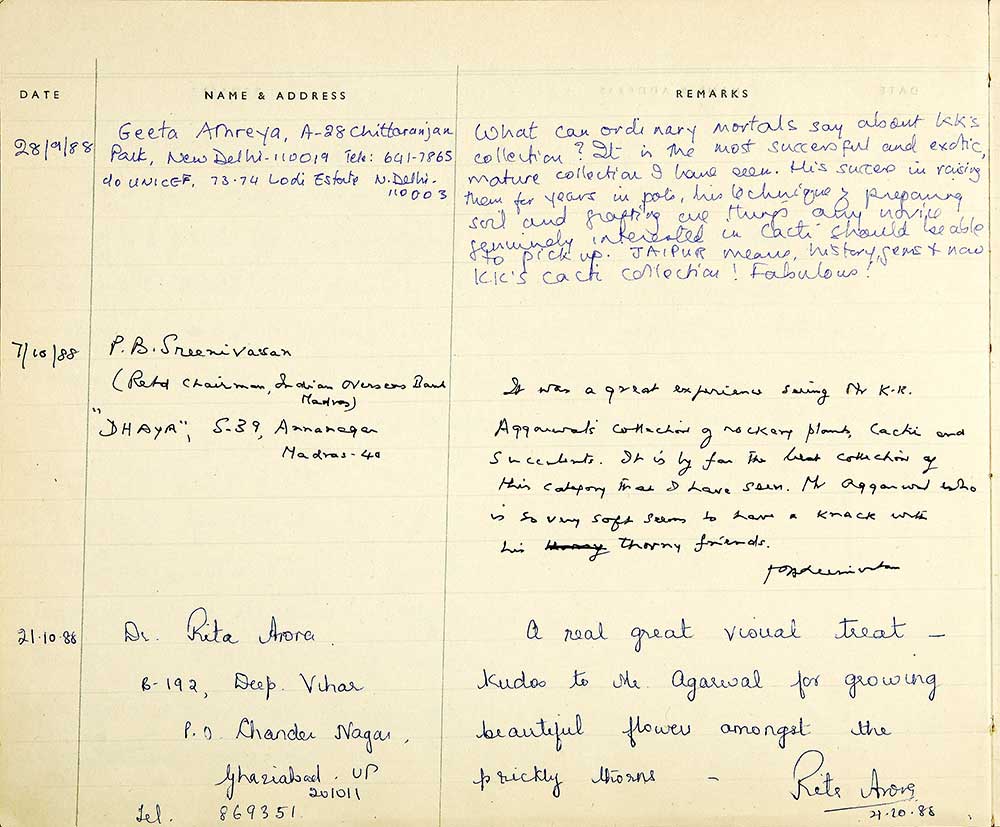 DATE
NAME & ADDRESS
REMARKS
28/9/88
Geeta Athreya, A-28 Chittaranjan
Park, New Delhi-110019 Tele: 641-7865
c/o UNICEF, 73-74 Lodi Estate N. Delhi.
110003
What can ordinary mortals say about KK's
collection? It is the most successful and exotic,
mature collection I have seen. His success in raising
them for years in pots, his technique of preparing
soil and grafting are things any novice
genuinely interested in Cacti should be able
to pick up. JAIPUR means, history, gems & now
KK's cacti collection! Fabulous!
7/10/88
P. B. Sreenivasan
(Retd Chairman, Indian Overseas Bank
Madras)
"DHAYA", S-39, Annanagar
Madras-40
It was a great experience seeing Mr K.K.
Aggarwal's collection of rockery plants, Cacti and
Succulents. It is by far the best collection of
this category that I have seen. Mr Aggarwal who
is so very soft seems to have a knack with
his thorny friends.
PBSreenivasan
21.10.88
Dr. Rita Arora.
B-192, Deep. Vihar
P.O Chander Nagar,
Ghaziabad. UP
201011
Tel. 869351
A real great visual treat —
Kudos to Mr. Agarwal for growing
beautiful flower amongst the
prickly thorns —
Rita Arora
21.10.88